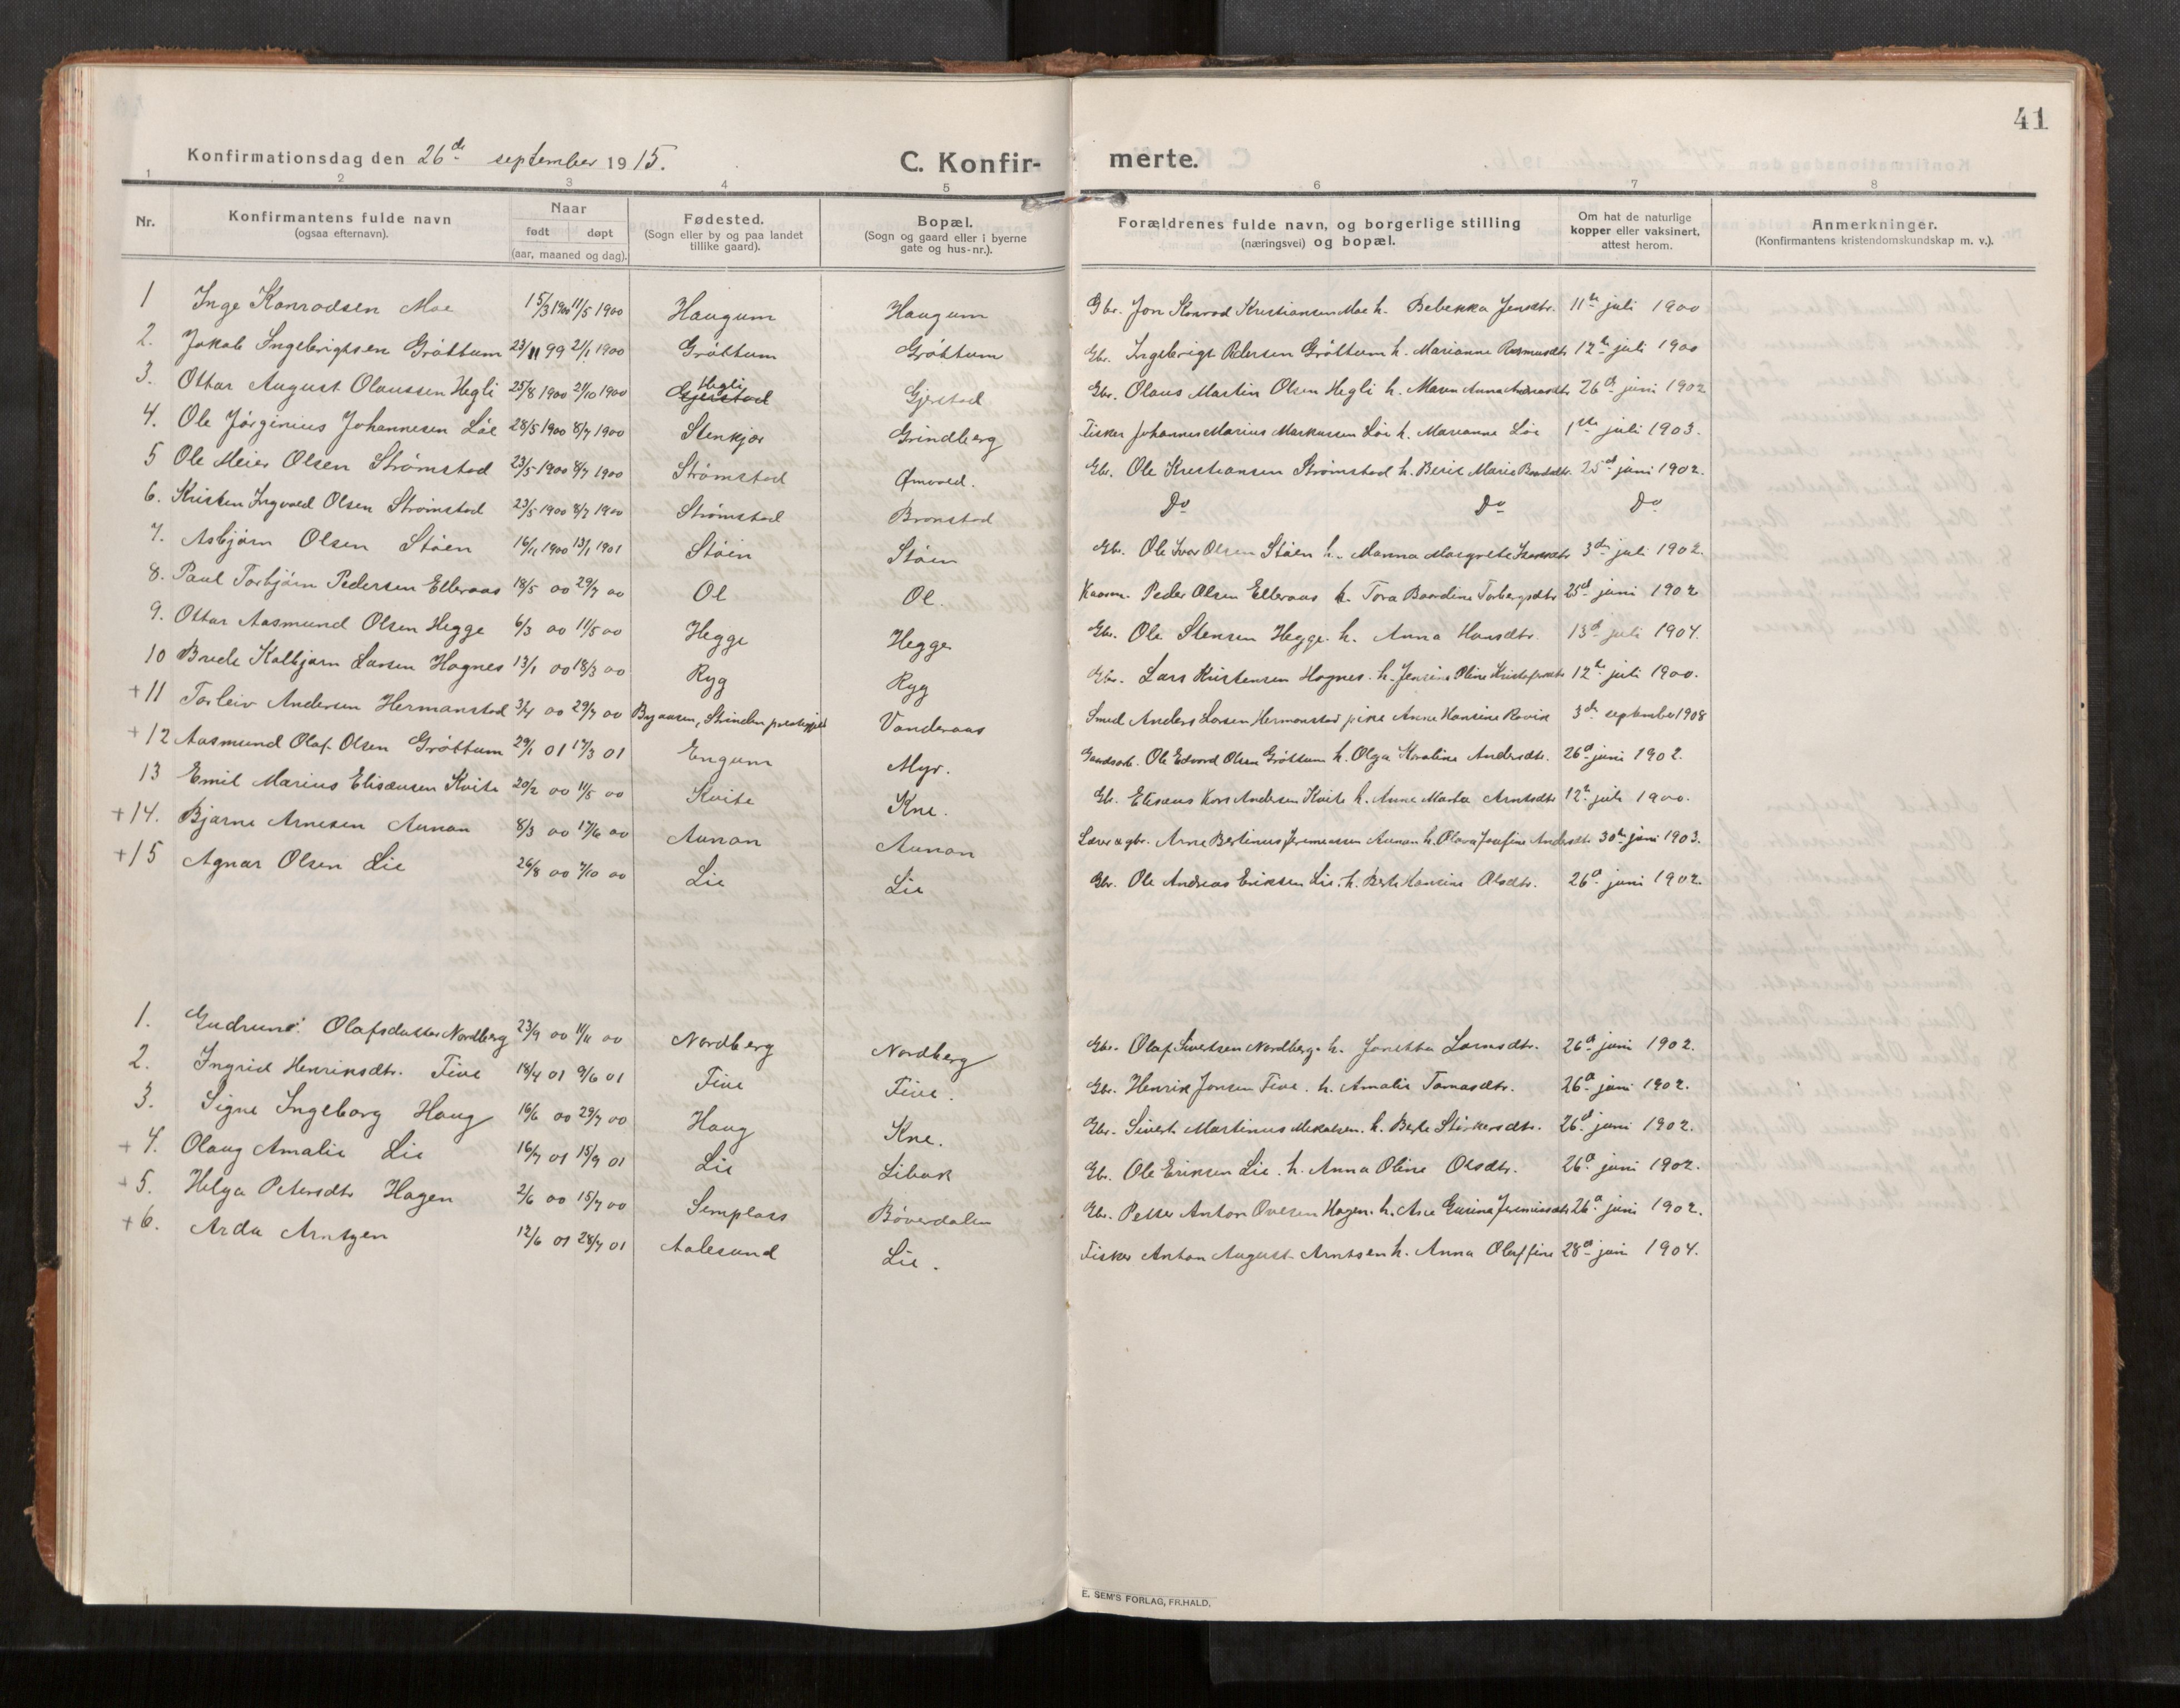 41
Konfirmationsdag den 26de september 1915. C. Konfir- merte.
1 2 3 4 5 6 7 8
Nr. Konfirmantens fulde navn (ogsaa efternavn). Naar født døpt (aar, maaned og dag). Fødested. (Sogn eller by og paa landet tillike gaard). Bopæl. (Sogn og gaard eller i byerne gate og hus-nr.). Forældrenes fulde navn, og borgerlige stilling (næringsvei) og bopæl. Om hat de naturlige kopper eller vaksinert, attest herom. Anmerkninger. (Konfirmantens kristendomskundskap m. v.).
1 Inge Konradsen Moe 15/3 1900 11/5 1900 Haugum Haugum Gbr. Jon Konrad Kristiansen Moe h. Bebekka Jensdtr. 11te juli 1900
2. Jakob Ingebrigtsen Grøttum 23/11 99 21/1 1900 Grøttum Grøttum Gbr. Ingebrigt Pedersen Grøttum h. Marianne Rasmusdtr 12te juli 1900
3. Ottar August Olaussen Hegli 25/8 1900 21/10 1900 Hegli Gjerstad Gjerstad Gbr. Olaus Martin Olsen Hegli h. Maren Anna 26de juni 1902
4. Ole Jørginius Johannesen Løe 28/5 1900 8/7 1900 Stenkjær Grindberg Fisker Johannes Marius Markussen Løe h. Marianne Løe 1ste juli 1903.
5 Ole Meier Olsen Strømstad 23/5 1900 8/7 1900 Strømstad Ømvold. Gbr. Ole Kristiansen Strømstad h. Berit Marie 25de juni 1902.
6. Kristen Ingvald Olsen Strømstad 23/5 1900 8/7 1900 Strømstad Bronstad Do Do Do
7. Asbjørn Olsen Støen 16/11 1900 13/1 1901 Støen Støen Gbr. Ole Iver Olsen Støen h. Manna Margrete 3die juli 1902.
8. Paul Torbjørn Pedersen Elleraas 18/5 00 29/7 00 Øl Øl. Peder Olsen Elleraas h. Tora Baardine Torbergsdtr 25de juni 1902
9. Ottar Aasmund Olsen Hegge 6/3 00 11/5 00 Hegge Hegge Gbr. Ole Stensen Hegge. h. Anna Hansdtr. 13de juli 1904.
10 Brede Kolbjørn Larsen Hognes 13/1 00 18/3 00 Ryg Ryg Gbr. Lars Kristensen Hognes. h. Jensine Oline Kristofersdtr 12te juli 1900.
+ 11 Torleiv Andersen Hermanstad 3/4 00 29/7 00 Byaasen, Strinden prestegjeld Vanderaas Smed Anders Larsen Hermanstad pike Anne Hansine Ravik 3die september 1908
+ 12 Aasmund Olaf Olsen Grøttum 29/1 01 17/3 01 Engum Myr. Gaardsarb. Ole Edvard Olsen Grøttum h. Olga Karoline Andersdtr. 26de juni 1902.
13 Emil Marius Elisæusen Kvite 20/2 00 11/5 00 Kvite Kne. Gb. Elisæus Kors Andersen Kvite h. Anne Marta Arntsdtr 12te juli 1900.
+ 14. Bjarne Arnesen Aunan 8/3 00 17/6 00 Aunan Aunan Lærer & gbr. Arne Bertinus Jeremiassen Aunan h. Olava Josefine Andersdtr 30te juni 1903.
+ 15 Agnar Olsen Lie 26/8 00 7/10 00 Lie Lie Gbr. Ole Andreas Eriksen Lie. h. Berte Hansine Olsdtr. 26de juni 1902.
1. Gudrun Olafsdatter Nordberg 23/9 00 11/11 00 Nordberg Nordberg Gbr. Olaf Sivertsen Nordberg. h. Jonetta Larnsdtr. 26de juni 1902.
2. Ingrid Henriksdtr. Five 18/4 01 9/6 01 Five Five. Gbr. Henrik Jonsen Five. h. Amalie Tomasdtr. 26de juni 1902.
3. Signe Ingeborg Haug 16/6 00 29/7 00 Haug Kne. Gbr. Sivert Martinus Mikalsen. h. Berte Størkersdtr. 26de juni 1902.
+ 4. Olaug Amalie Lie 16/7 01 15/9 01 Lie Libak Gb. Ole Eriksen Lie. h. Anna Oline Olsdtr. 26de juni 1902.
+ 5. Helga Petersdtr Hagen 2/6 00 15/7 00 Semplass Bøverdalen Gbr. Petter Anton Ovesen Hagen. h. Ane Gurina Jeremiasdtr 26de juni 1902.
+ 6. Arda Arntzen 12/6 01 28/7 01 Aalesund Lie. Fisker Anton August Arntsen h. Anna Olaffine 28de juni 1904.
E. SEM'S FORLAG, FR.HALD.